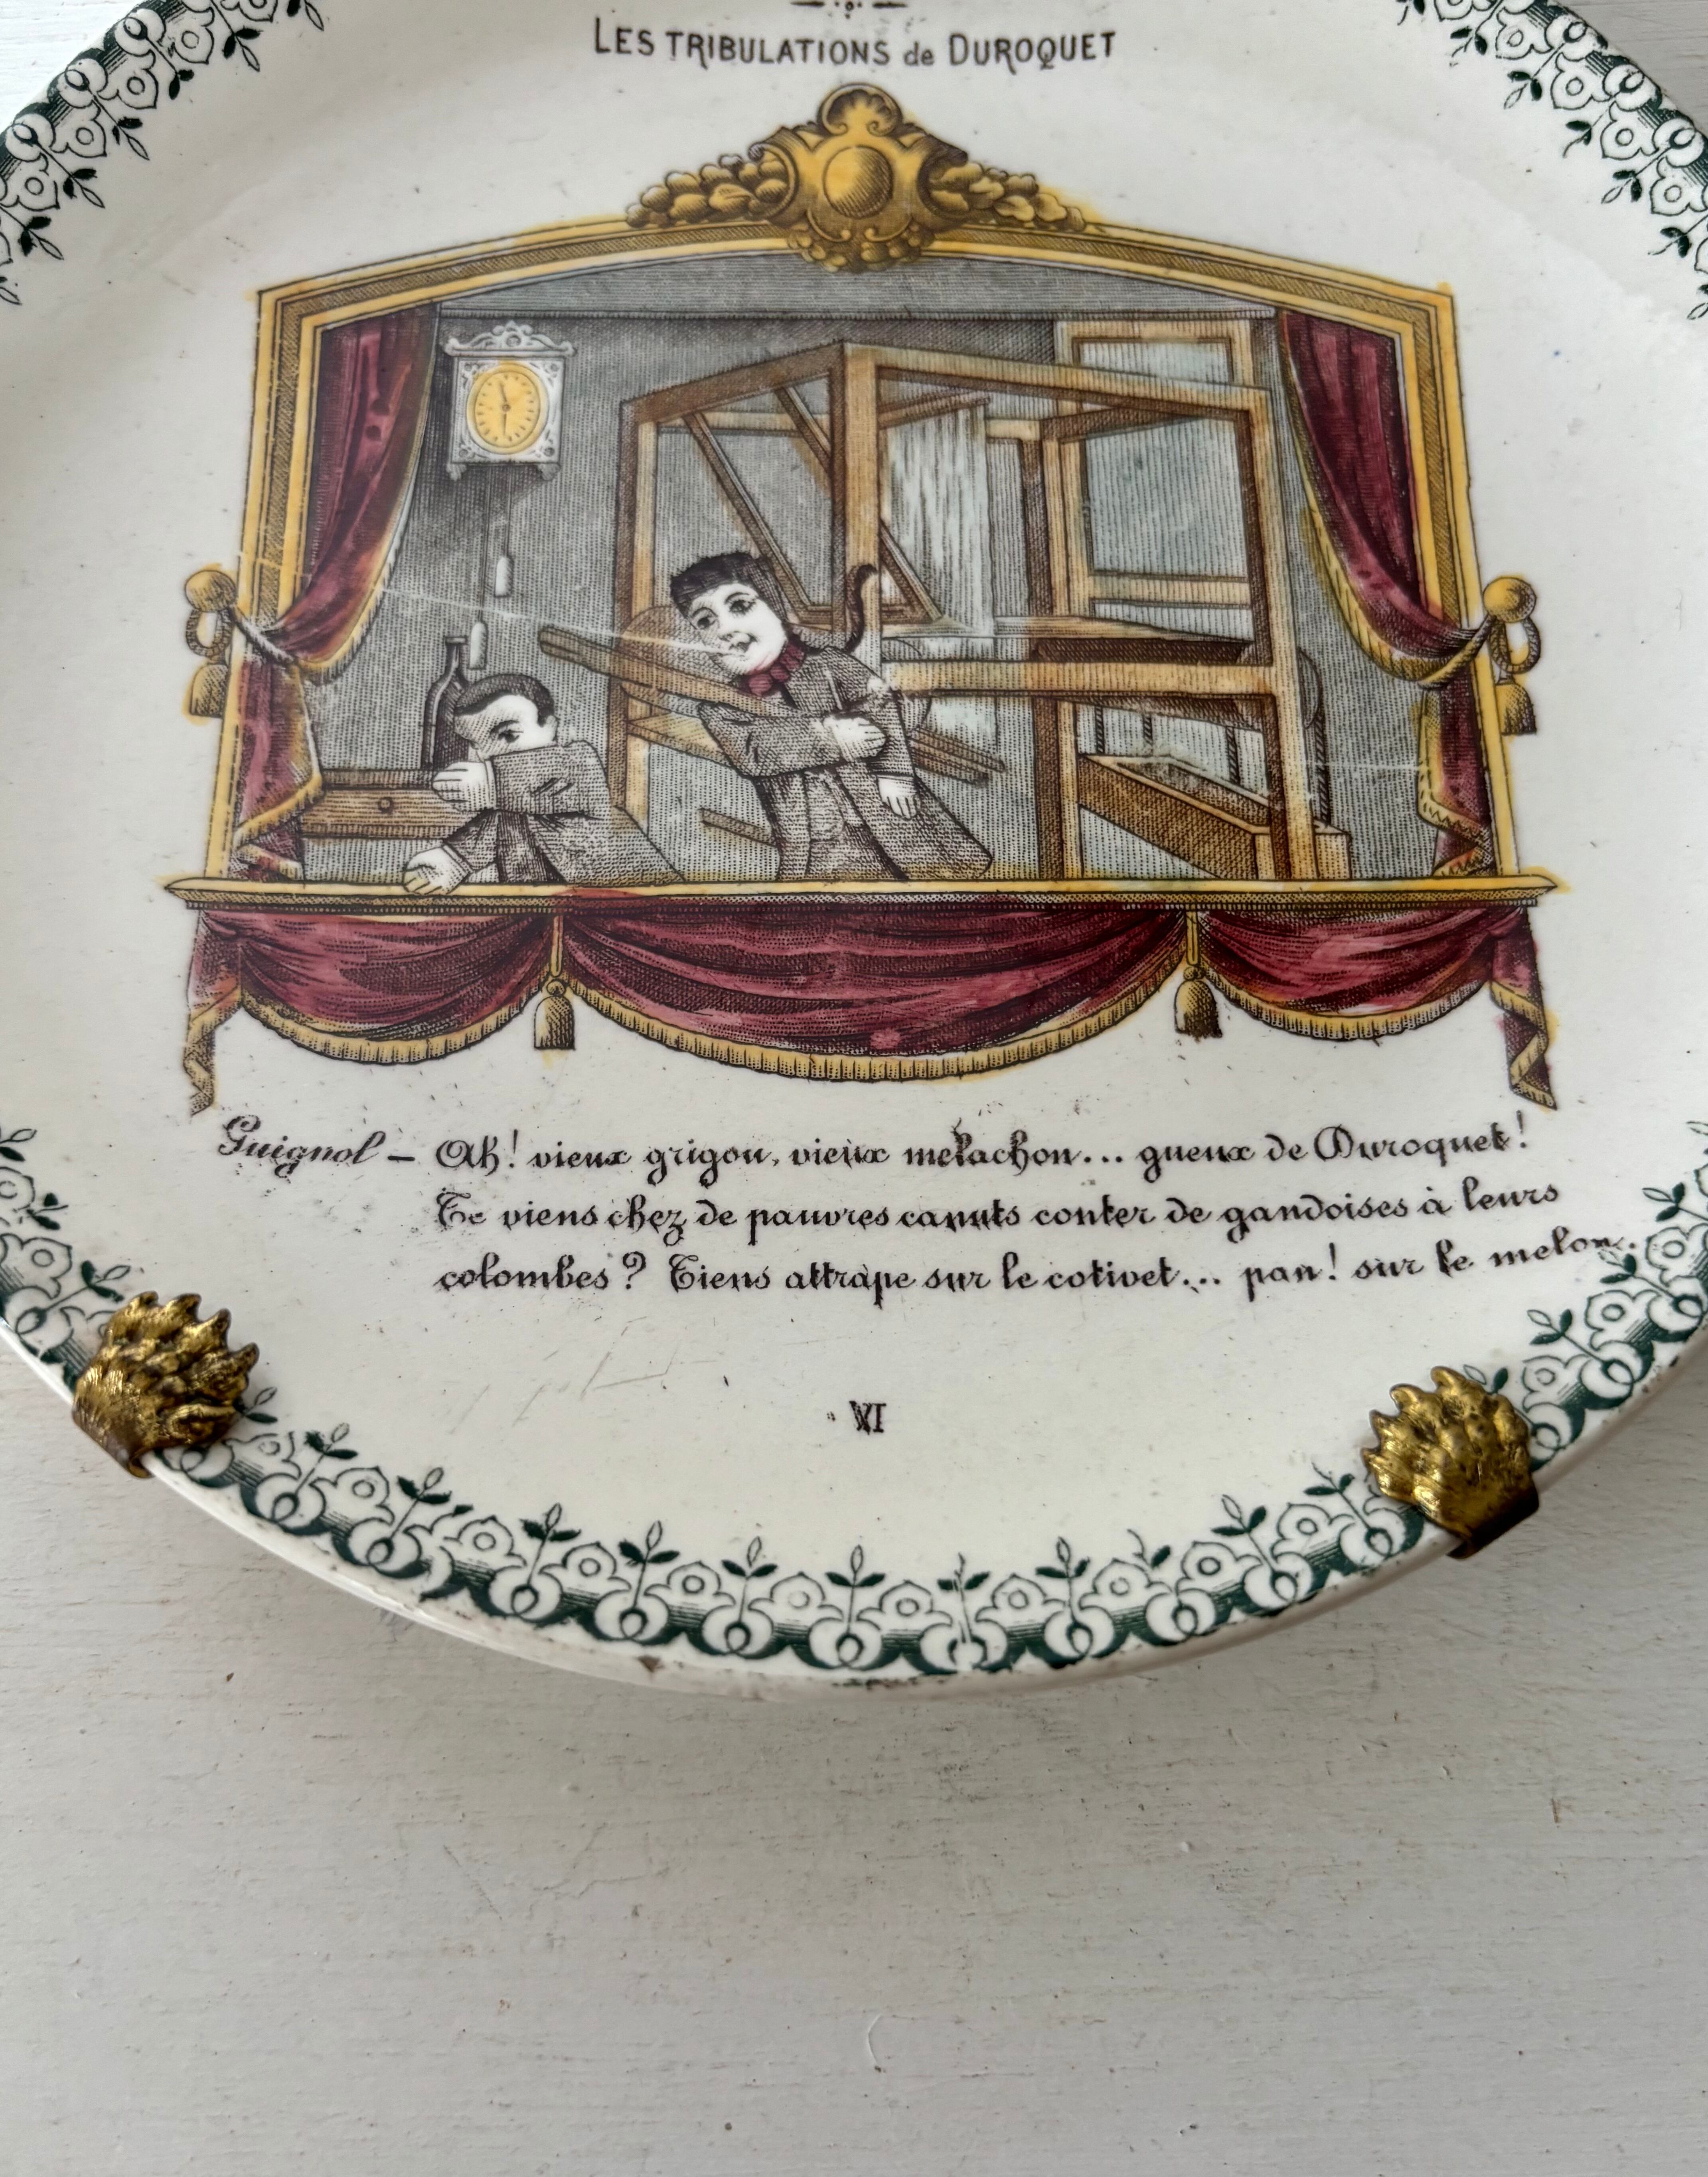 LES TRIBULATIONS de DUROQUET
Guignol – Ah! vieux grigou, vieux melachon... gueux de Duroquet!
Te viens chez de pauvres canuts conter de gandoises à leurs
colombes? Tiens attrape sur le cotivet... pan! sur le melon.
VI